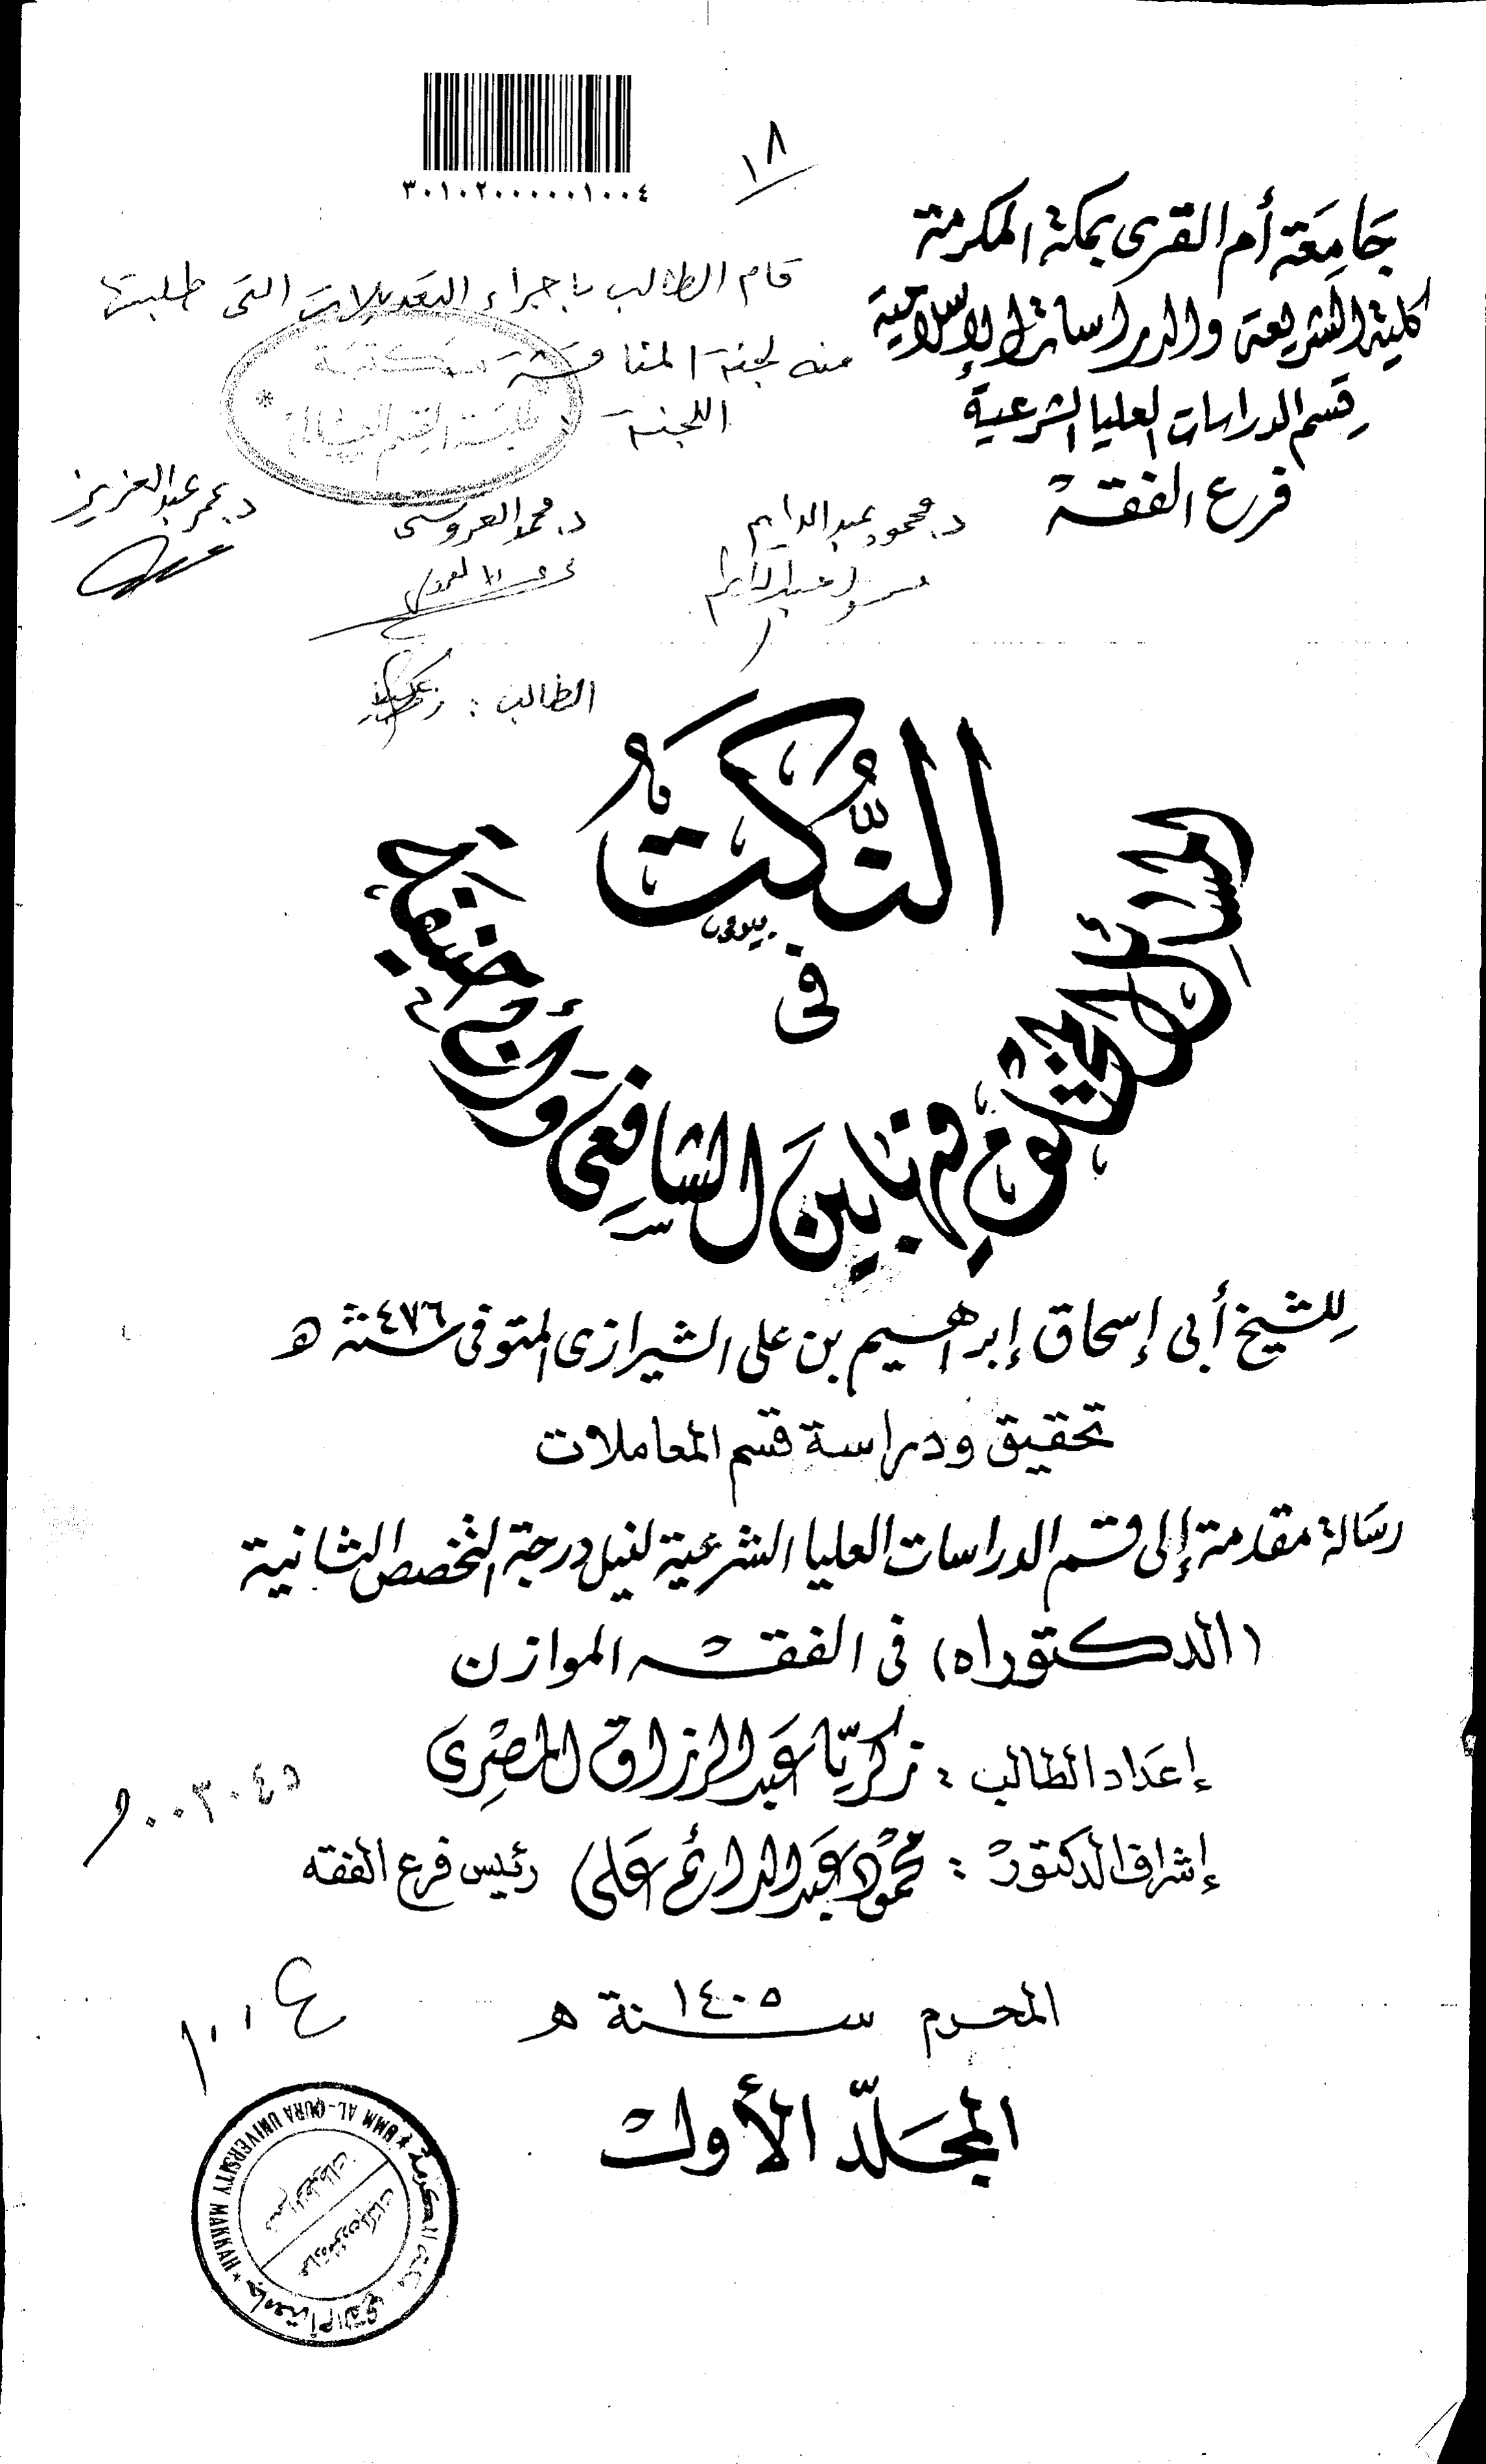 ٣٠١٠٢٠٠٠٠٠١٠٠٤
١٨
جامعة أم القرى بمكة المكرمة
كلية الشريعة والدراسات الإسلامية
قسم الدراسات العليا الشرعية
فرع الفقه
قام الطالب باجراء التعديلات التى طلبتها
منه لجنة المناقشة
اللجنة
د. محمود عبد الدايم
د. محمد العروسى
د. عمر عبد العزيز
الطالب : زكريا
النُّكَت
فى
المسائل المختلف فيها بين الشافعى وأبى حنيفة
للشيخ أبى إسحاق إبراهيم بن على الشيرازى المتوفى سنة ٤٧٦ ه
تحقيق ودراسة قسم المعاملات
رسالة مقدمة إلى قسم الدراسات العليا الشرعية لنيل درجة التخصص الثانية
(الدكتوراه) فى الفقه الموازن
إعداد الطالب : زكريّا عبد الرزاق المصرى
إشراف الدكتور : محمود عبد الدائم على رئيس فرع الفقه
٠٠٣٠٤٥
المحرم سنة ١٤٠٥ ه
١٠٠٤
المجلّد الأول
UMM AL-QURA UNIVERSITY MAKKAH
جامعة أم القرى مكة المكرمة